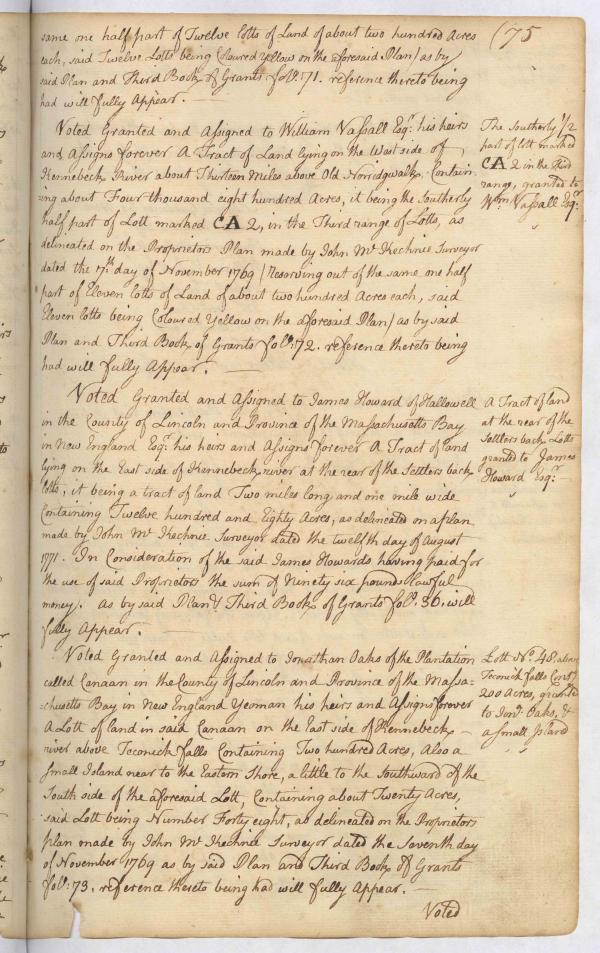 (75
same one half part of Twelve lotts of Land of about two hundred Acres
each, said Twelve Lotts being Coloured Yellow on the aforesaid Plan) as by
said Plan and Third Book of Grants folo: 71. reference thereto being
had will fully Appear.
Voted Granted and Assigned to William Vassall Esqr. his heirs
and Assigns forever A Tract of Land lying on the West side of
Kennebeck River about Thirteen Miles above Old Norridgwalk, Contain-
ing about Four thousand eight hundred Acres, it being the Southerly
half part of Lott marked CA 2, in the Third range of Lotts, as
delineated on the Proprietors Plan made by John Mc Kechnie Surveyor
dated the 7th. day of November 1769 (Reserving out of the same one half
part of Eleven lotts of Land of about two hundred Acres each, said
Eleven lotts being Coloured Yellow on the aforesaid Plan) as by said
Plan and Third Book of Grants folo: 72. reference thereto being
had will fully Appear.
The Southerly 1/2
part of lott marked
CA 2 in the third
range, granted to
Wm. Vassall Esqr.
Voted Granted and Assigned to James Howard of Hallowell
in the County of Lincoln and Province of the Massachusetts Bay
in New England Esqr. his heirs and Assigns forever A Tract of land
lying on the East side of Kennebeck river at the rear of the Settlers back
lotts, it being a tract of land Two miles long and one mile wide
Containing Twelve hundred and Eighty Acres, as delineated on a plan
made by John Mc Kechnie Surveyor dated the twelfth day of August
1771. In Consideration of the said James Howards having paid for
the use of said Proprietors the sum of Ninety six pounds lawful
money. As by said Plan & Third Book of Grants folo. 36. will
fully Appear.
A Tract of land
at the rear of the
Settlers back Lotts
granted to James
Howard Esqr.
Voted Granted and Assigned to Jonathan Oaks of the Plantation
called Canaan in the County of Lincoln and Province of the Massa-
=chusetts Bay in New England Yeoman his heirs and Assigns forever
A Lott of land in said Canaan on the East side of Kennebeck
river above Teconick falls Containing Two hundred Acres, Also a
small Island near to the Eastern Shore, a little to the Southward of the
South side of the aforesaid Lott, Containing about Twenty Acres,
said Lott being Number Forty eight, as delineated on the Proprietors
plan made by John Mc Kechnie Surveyor dated the Seventh day
of November 1769 as by said Plan and Third Book of Grants
folo: 73. reference thereto being had will fully Appear.
Lott No. 48. above
Teconick falls Containg
200 Acres, granted
to Jonn. Oaks, &
a small Island
Voted